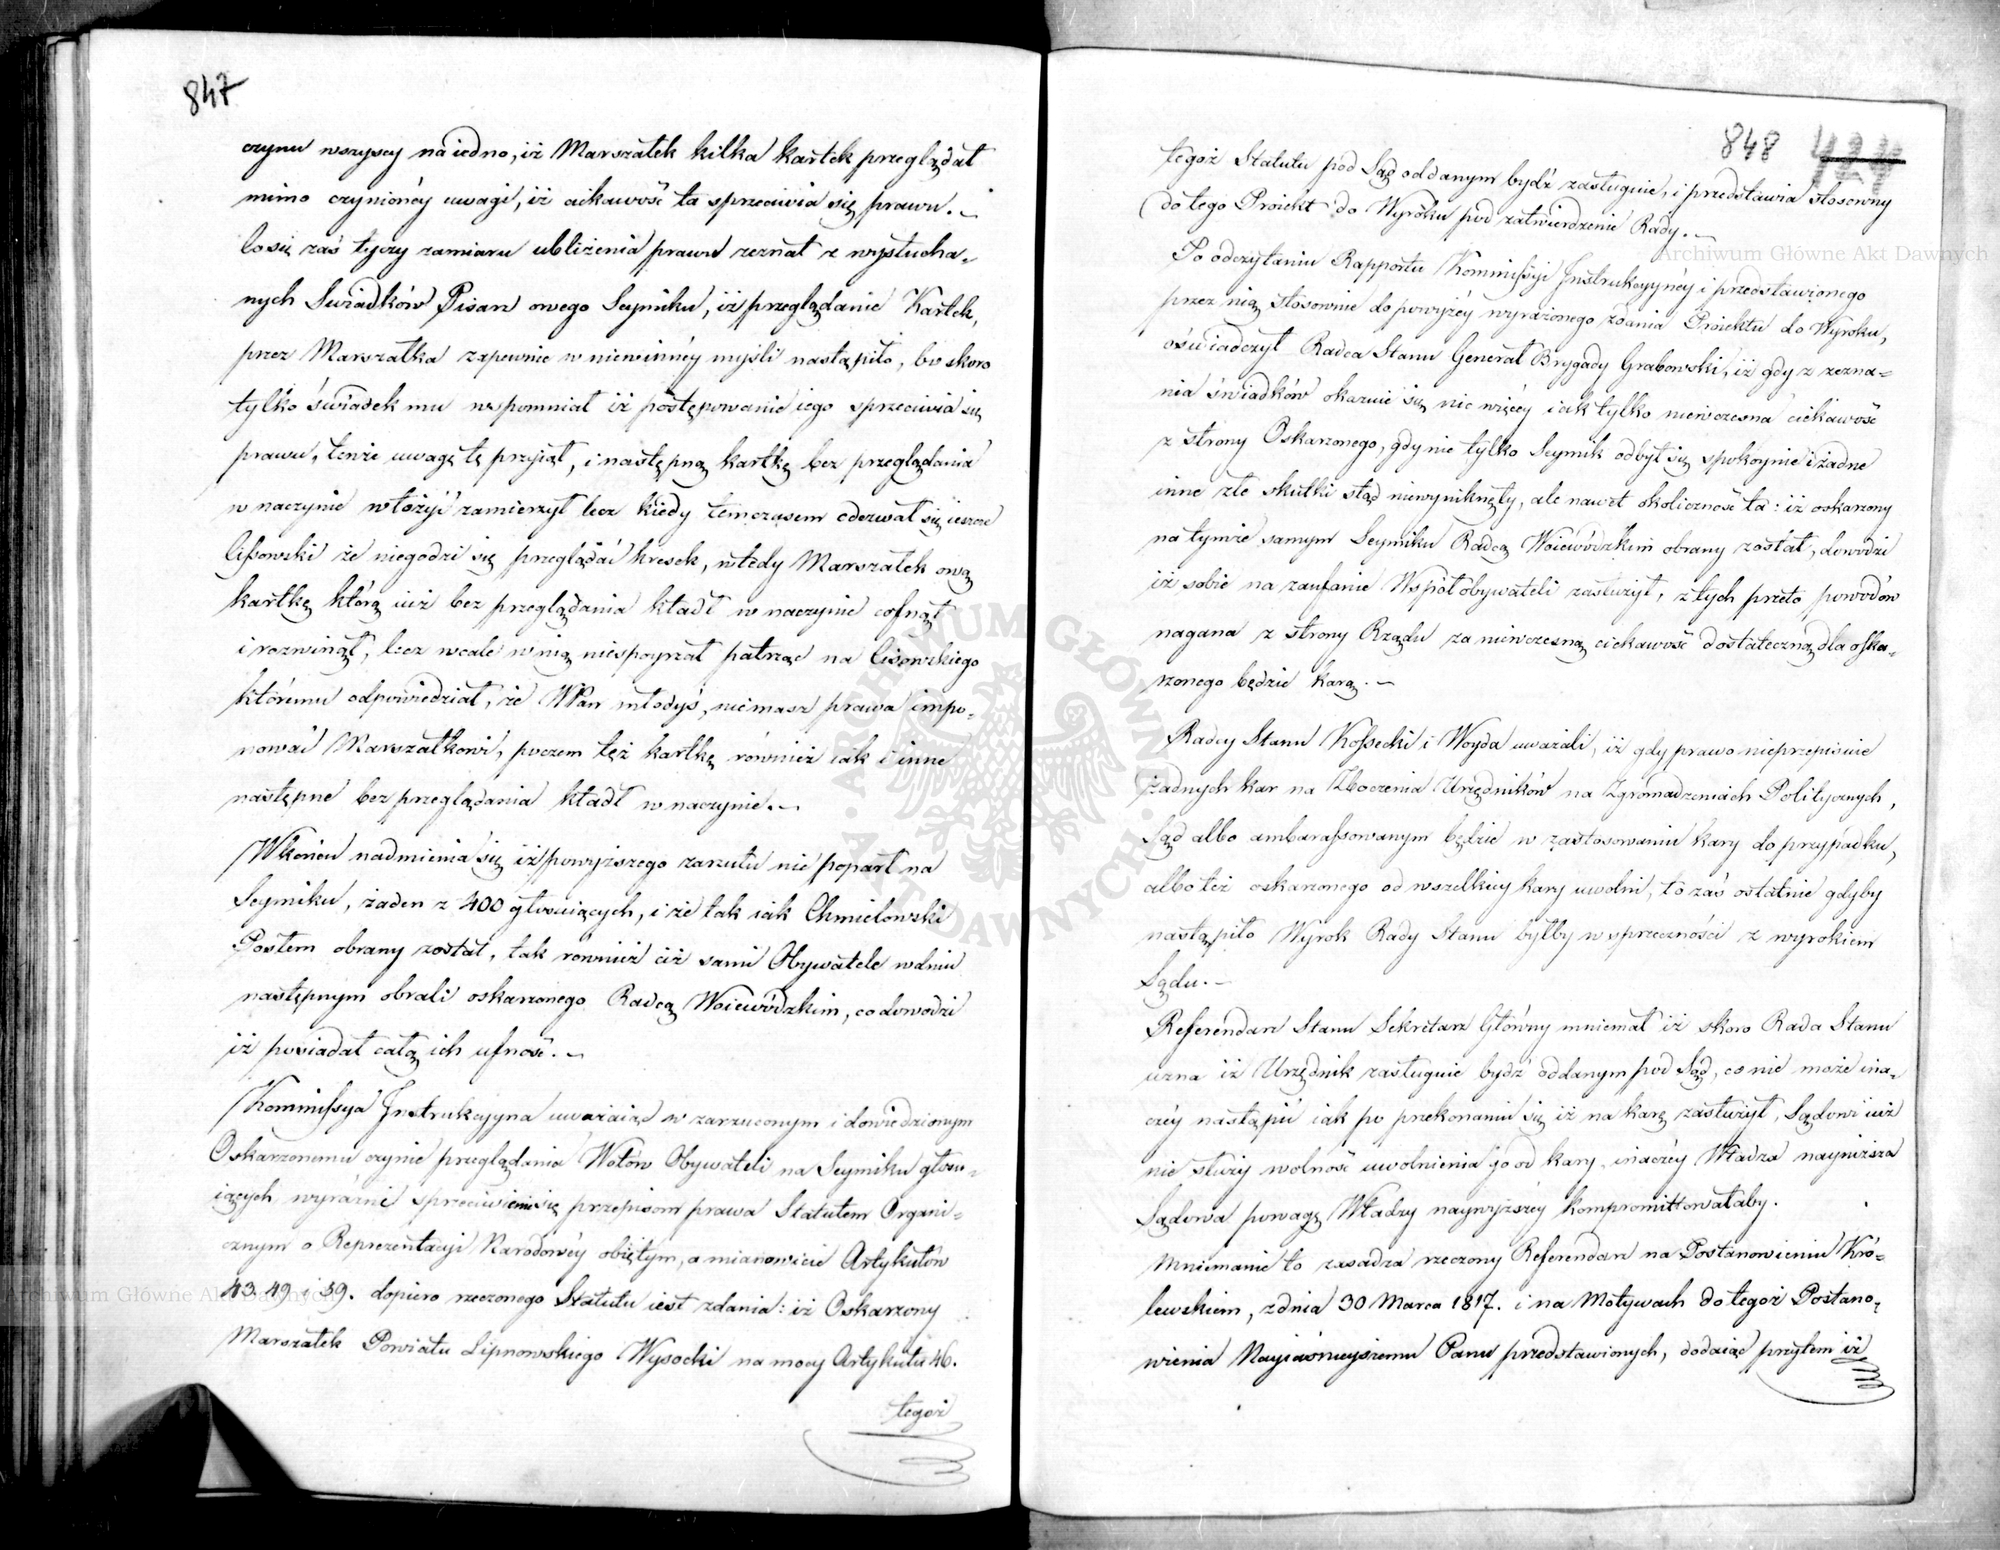 847
czynu wszyscy na iedno, iż Marszałek kilka kartek przeglądał
mimo czynionéy uwagi, iż ciekawość ta sprzeciwia się prawu.
Co się zaś tyczy zamiaru ubliżenia prawu zeznał z wysłucha-
nych Swiadków Pisarz owego Seymiku, iż przeglądanie Kartek,
przez Marszałka zapewnie w niewinnéy myśli nastąpiło, bo skoro
tylko świadek mu wspomniał iż postępowanie iego sprzeciwia się
prawu, tenże uwagę tę przyiął, i następną kartkę bez przeglądania
w naczynie włożyć zamierzył lecz kiedy temczasem odezwał się ieszcze
Lissowski że niegodzi się przeglądać kresek, wtedy Marszałek ową
kartkę którą iuż bez przeglądania kładł w naczynie cofnął
i rozwinął, lecz wcale w nią niespoyrzał patrząc na Lisowskiego
któremu odpowiedział, że WPan młodyś, niemasz prawa impo-
nować Marszałkowi, poczem też kartkę również iak i inne
następne bez przeglądania kładł w naczynie.
Wkońcu nadmienia się iż powyższego zarzutu nie poparł na
Seymiku, żaden z 400 głosuiących, i że tak iak Chmielowski
Posłem obrany został, tak również ciż sami Obywatele w dniu
następnym obrali oskarżonego Radcą Woiewódzkim, co dowodzi
iż posiadał całą ich ufność.
Kommissya Instrukcyyna uważaiąc w zarzuconym i dowiedzionym
Oskarżonemu czynie przeglądania Wotów Obywateli na Seymiku głosu-
iących wyraźne sprzeciwienie się przepisom prawa Statutem Organi-
cznym o Reprezentacyi Narodowéy obiętym, a mianowicie Artykułów
43. 49 i 59. dopiero rzeczonego Statutu iest zdania: iż Oskarżony
Marszałek Powiatu Lipnowskiego Wysocki na mocy Artykułu 46.
tegoż
848 424
tegoż Statutu pod Sąd oddanym bydź zasługuie, i przedstawia stosowny
do tego Proiekt do Wyroku pod zatwierdzenie Rady.
Po odczytaniu Rapportu Kommissyi Instrukcyynéy i przedstawionego
przez nią stosownie do powyżéy wyrażonego zdania Proiektu do Wyroku,
oświadczył Radca Stanu Generał Brygady Grabowski, iż gdy z zezna-
nia świadków okazuie się nic więcéy iak tylko niewczesna ciekawość
z strony Oskarżonego, gdy nie tylko Seymik odbył się spokoynie i żadne
inne złe skutki stąd niewyniknęły, ale nawet okoliczność ta: iż oskarżony
na tymże samym Seymiku Radcą Woiewódzkim obrany został, dowodzi
iż sobie na zaufanie Współobywateli zasłużył, z tych przeto powodów
nagana z strony Rządu za niewczesną ciekawość dostateczną dla oska-
rżonego będzie karą.
Radcy Stanu Kossecki i Woyda uważali, iż gdy prawo nieprzepisuie
żadnych kar na Zboczenia Urzędników na Zgromadzeniach Politycznych,
Sąd albo ambarassowanym będzie w zastosowaniu kary do przypadku,
albo też oskarżonego od wszelkiey kary uwolni, to zaś ostatnie gdyby
nastąpiło Wyrok Rady Stanu byłby w sprzeczności z wyrokiem
Sądu.
Referendarz Stanu Sekretarz Główny mniemał iż skoro Rada Stanu
uzna iż Urzędnik zasługuie bydź oddanym pod Sąd, co nie może ina-
czéy nastąpić iak po przekonaniu się iż na karę zasłużył, Sądowi iuż
nie służy wolność uwolnienia go od kary, inaczéy Władza nayniższa
Sądowa powagę Władzy naywyższéy kompromittowałaby.
Mniemanie to zasadza rzeczony Referendarz na Postanowieniu Kró-
lewskiem, z dnia 30 Marca 1817. i na Motywach do tegoż Postano-
wienia Nayiaśnieyszemu Panu przedstawionych, dodaiąc przytem iż
Archiwum Główne Akt Dawnych
Archiwum Główne Akt Dawnych
ARCHIWUM GŁÓWNE AKT DAWNYCH